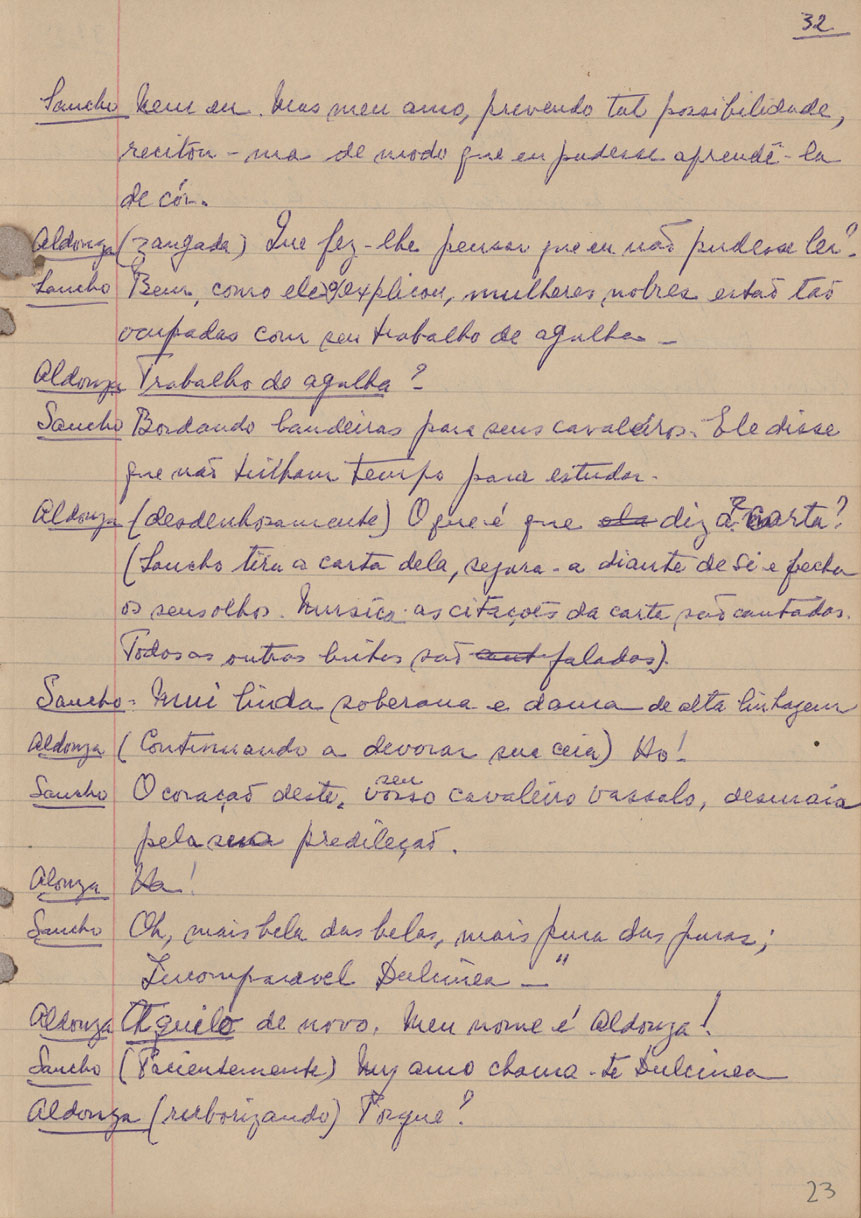 32
Sancho Nem eu. Mas meu amo, prevendo tal possibilidade,
recitou-ma de modo que eu pudesse aprendê-la
de cór.
Aldonza (zangada) Que fez-lhe pensar que eu não pudesse ler?
Sancho Bem, como ele explicou, mulheres nobres estão tão
ocupadas com seu trabalho de agulha —
Aldonza Trabalho de agulha?
Sancho Bordando bandeiras para seus cavaleiros. Ele disse
que não tinham tempo para estudar.
Aldonza (desdenhosamente) O que é que ela diz a carta?
(Sancho tira a carta dela, segura-a diante de si e fecha
os seus olhos. Música: as citações da carta são cantadas.
Todas as outras linhas são cant faladas).
Sancho: Mui linda soberana e dama de alta linhagem
Aldonza (Continuando a devorar sua ceia) Ho!
Sancho O coração deste, vosso seu cavaleiro vassalo, desmaia
pela sua predileção.
Alonza Ha!
Sancho Oh, mais bela das belas, mais pura das puras;
Incomparavel Dulcinea —"
Aldonza Aquilo de novo. Meu nome é Aldonza!
Sancho (Pacientemente) My amo chama-te Dulcinea
Aldonza (ruborizando) Porque?
23